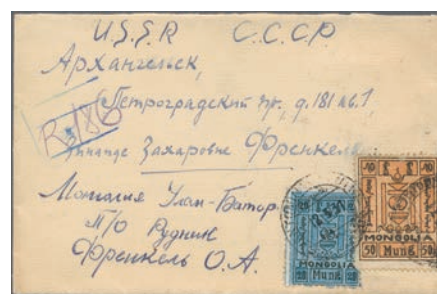 U.S.S.R С.С.С.Р.
Архангельск
Петроградский пр. д. 181 кв. 1
R 3/186
Захаровне Френкель
Монголия Улан-Батор
п/о Рудник
Френкель О.А.
MONGOLIA
50 Mung 50
MONGOLIA
25 Mung 25